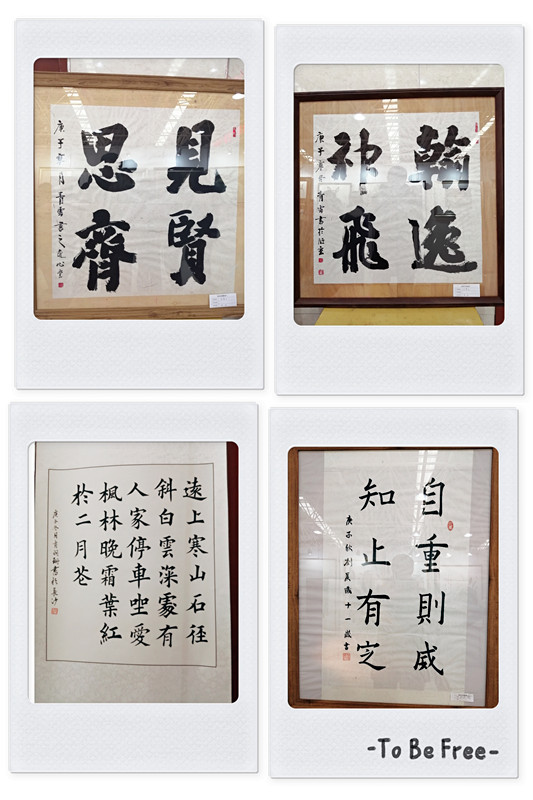 見賢
思齊
庚子月書之
翰逸
神飛
庚子書於
遠上寒山石徑
斜白雲深處有
人家停車坐愛
楓林晚霜葉紅
於二月花
庚子冬月書於長沙
自重則威
知止有定
庚子秋劉美十一歲書
-To Be Free-